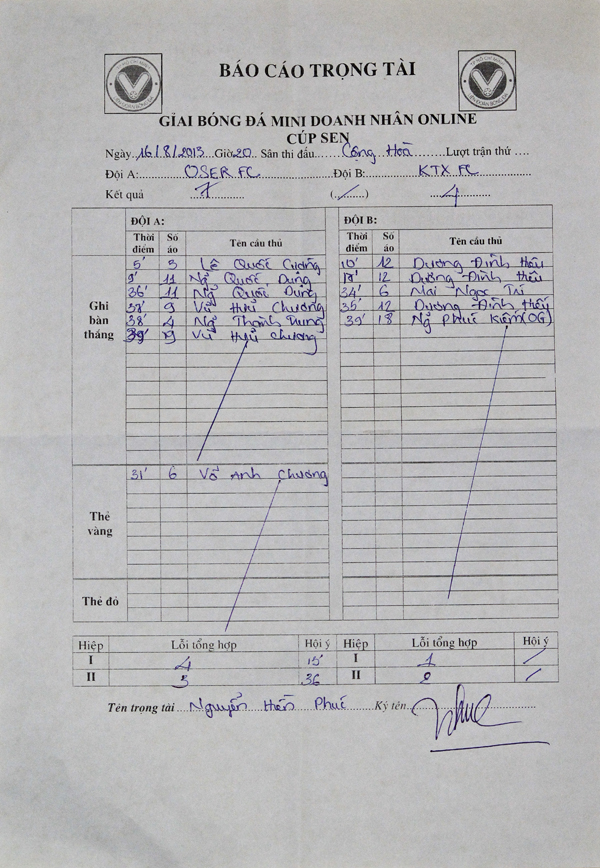 BÁO CÁO TRỌNG TÀI
GIẢI BÓNG ĐÁ MINI DOANH NHÂN ONLINE
CÚP SEN
Ngày 16/8/2013 Giờ 20 Sân thi đấu Cộng Hoà Lượt trận thứ
Đội A: OSER FC Đội B: KTX FC
Kết quả 7 (/) 4
ĐỘI A: ĐỘI B:
Thời điểm Số áo Tên cầu thủ Thời điểm Số áo Tên cầu thủ
Ghi bàn thắng
5' Lê Quốc Cường 10' 12 Dương Đình
9' 11 Ng Quốc Dũng 12 Dương Đình
36' 11 Ng Quốc Dũng 34' 6 Mai Ngọc Trí
37' 9 Vũ Hữu Chương 35' 12 Dương Đình
38' 4 Ng Thành Trung 39' 18 Ng Phúc Kiệm (OG)
39' 9 Vũ Hữu Chương
Thẻ vàng
31' 6 Võ Anh Chương
Thẻ đỏ
Hiệp Lỗi tổng hợp Hội ý Hiệp Lỗi tổng hợp Hội ý
I 4 15' I 1 /
II 36 II 2 /
Tên trọng tài Nguyễn Hiền Phúc Ký tên